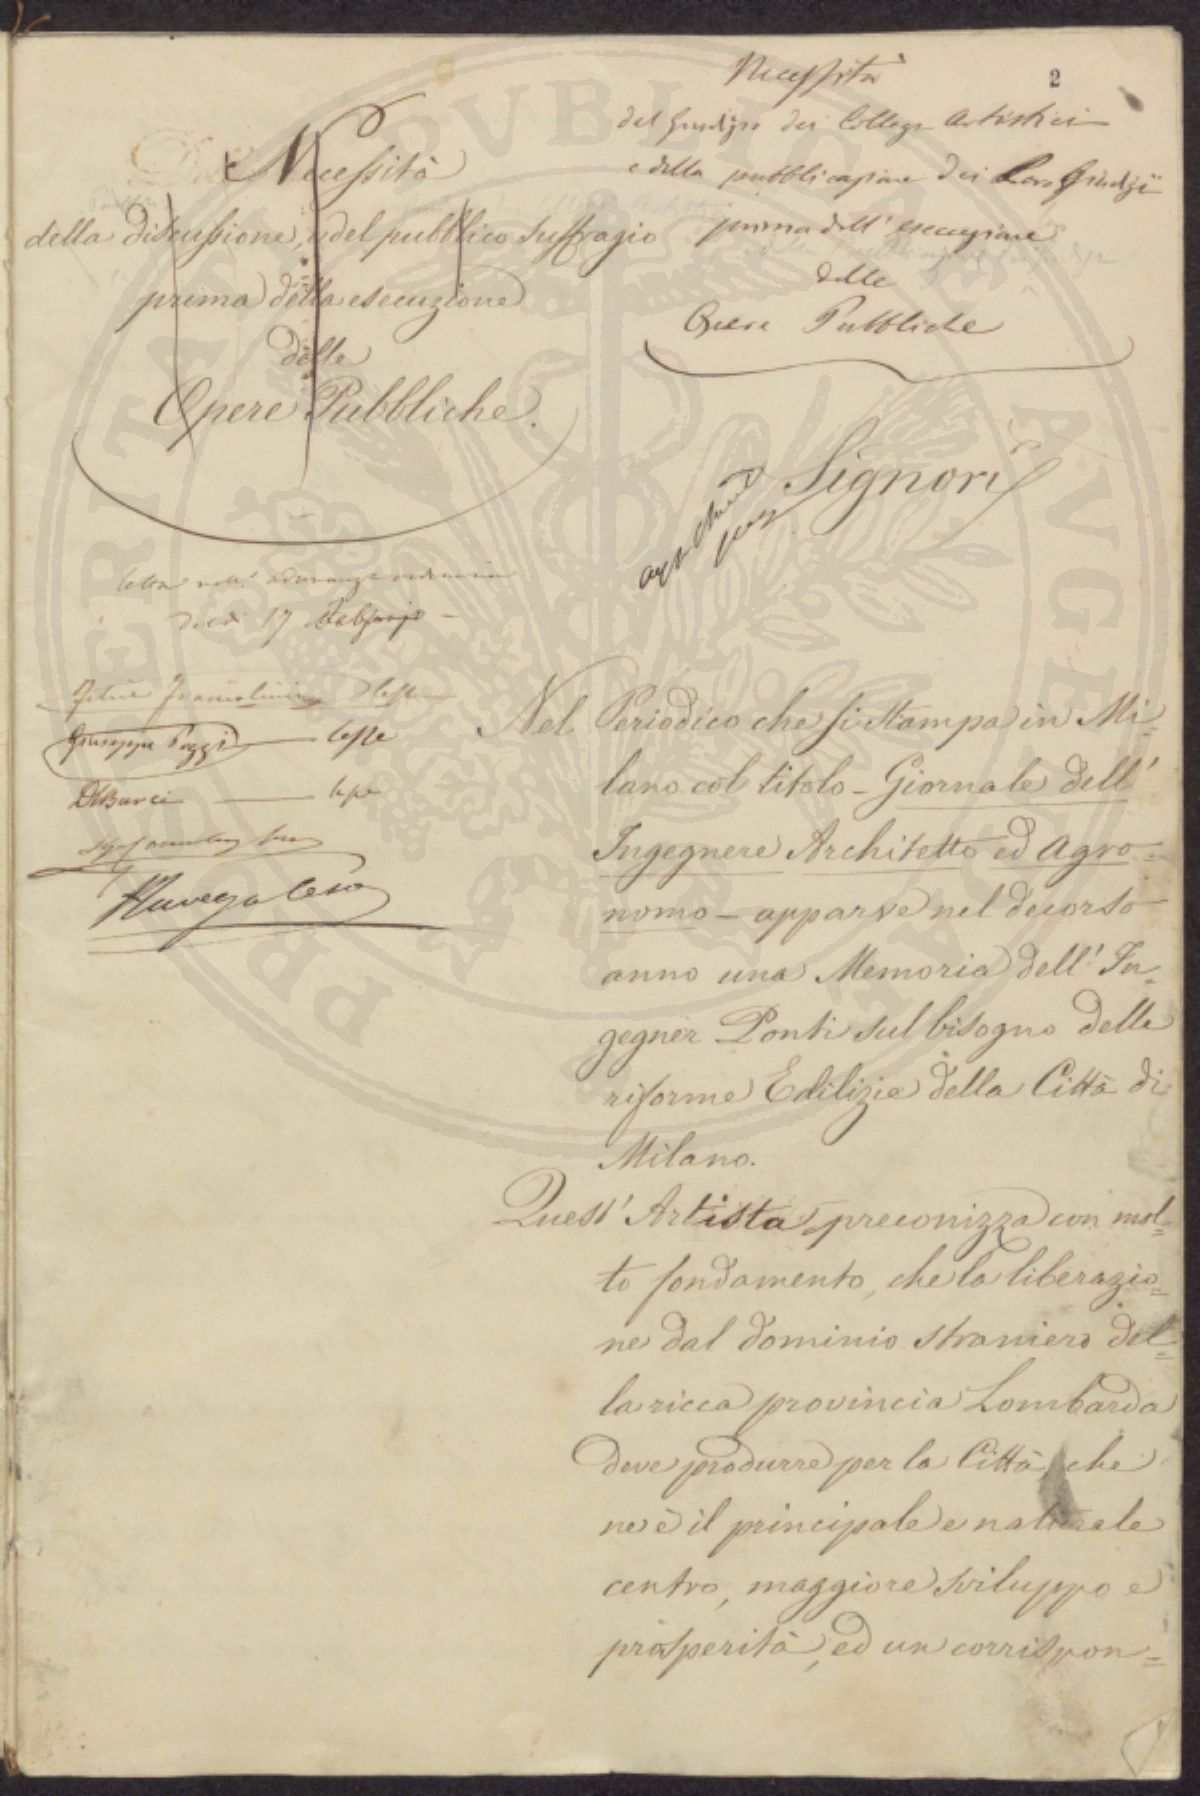 2
Necessità
della discussione, e del pubblico suffragio
prima della esecuzione
delle
Opere Pubbliche.
Necessità
del Giudizio dei Collegi Artistici
e della pubblicazione dei Loro Giudizii
prima dell' esecuzione
delle
Opere Pubbliche
Signori
letta nell' adunanza
17 Febbrajo
Giuseppe Poggi lesse
Nel Periodico che si stampa in Mi-
lano col titolo - Giornale dell'
Ingegnere Architetto ed Agro-
nomo - apparve nel decorso
anno una Memoria dell' In-
gegner Ponti sul bisogno delle
riforme Edilizie della Città di
Milano.
Quest' Artista preconizza con mol=
to fondamento, che la liberazio=
ne dal dominio straniero del=
la ricca provincia Lombarda
deve produrre per la Città, che
ne è il principale e naturale
centro, maggiore sviluppo e
prosperità, ed un corrispon=